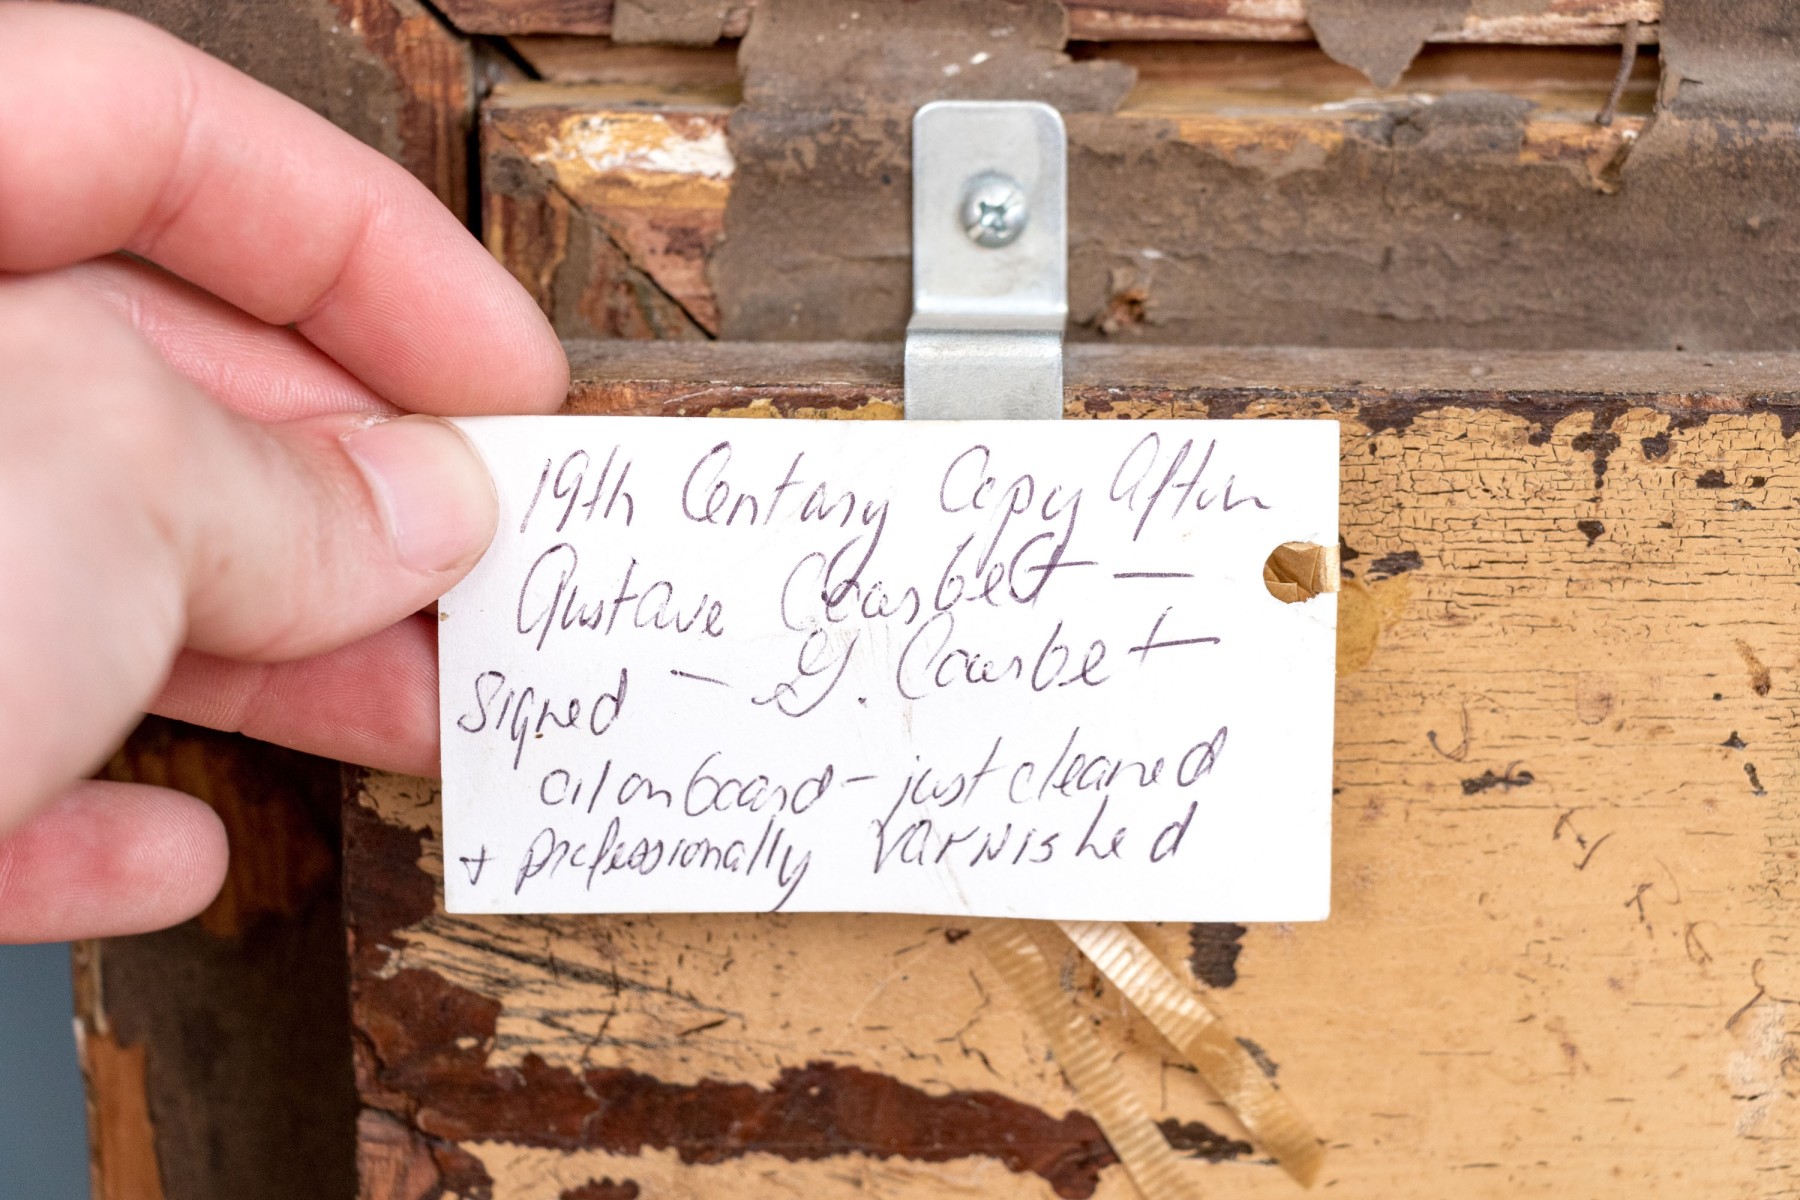 19th Century Copy After
Gustave Courbet —
Signed – G. Courbet
oil on board – just cleaned
+ professionally varnished